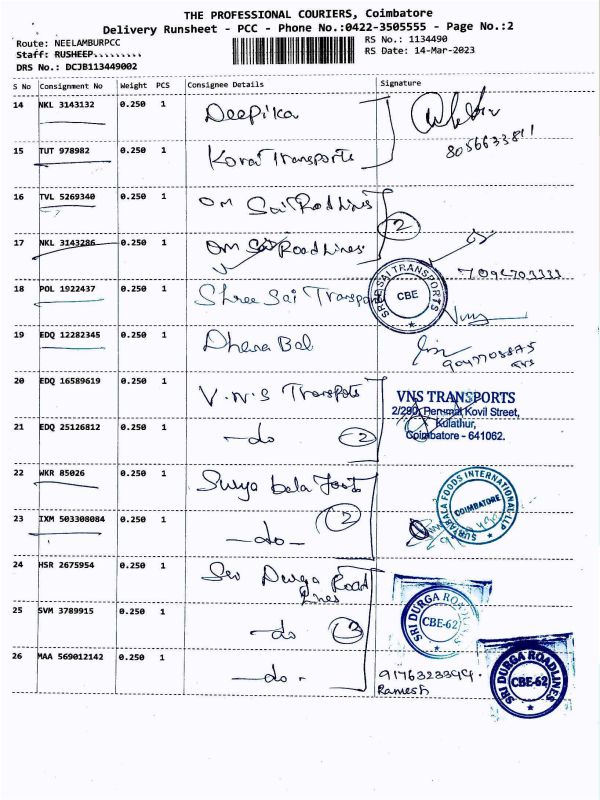 THE PROFESSIONAL COURIERS, Coimbatore
Delivery Runsheet - PCC - Phone No.:0422-3505555 - Page No.:2
Route: NEELAMBURPCC
RS No.: 1134490
Staff: RUSHEEP.........
RS Date: 14-Mar-2023
DRS No.: DCJB113449002
S No Consignment No Weight PCS Consignee Details Signature
14 NKL 3143132 0.250 1 Deepika
8056633811
15 TUT 978982 0.250 1 Kovai Transports
16 TVL 5269340 0.250 1 Om Sai Road Lines
2
17 NKL 3143286 0.250 1 Om Sai Road Lines
18 POL 1922437 0.250 1 Shree Sai Transport
SRI SAI TRANSPORTS
CBE
19 EDQ 12282345 0.250 1 Dhana Bal
20 EDQ 16589619 0.250 1 V.N.S Transpots
VNS TRANSPORTS
2/290, Perumal Kovil Street,
Kulathur,
Coimbatore - 641062.
21 EDQ 25126812 0.250 1 -do 2
22 WKR 85026 0.250 1 Surya bala Foods
SURYABALA FOODS INTERNATIONAL LLP
COIMBATORE
23 IXM 503308084 0.250 1 -do- 2
24 HSR 2675954 0.250 1 Sri Durga Road
Lines
SRI DURGA ROADLINES
CBE-62
25 SVM 3789915 0.250 1 -do 3
26 MAA 569012142 0.250 1 -do-
9176323394.
Ramesh
SRI DURGA ROADLINES
CBE-62